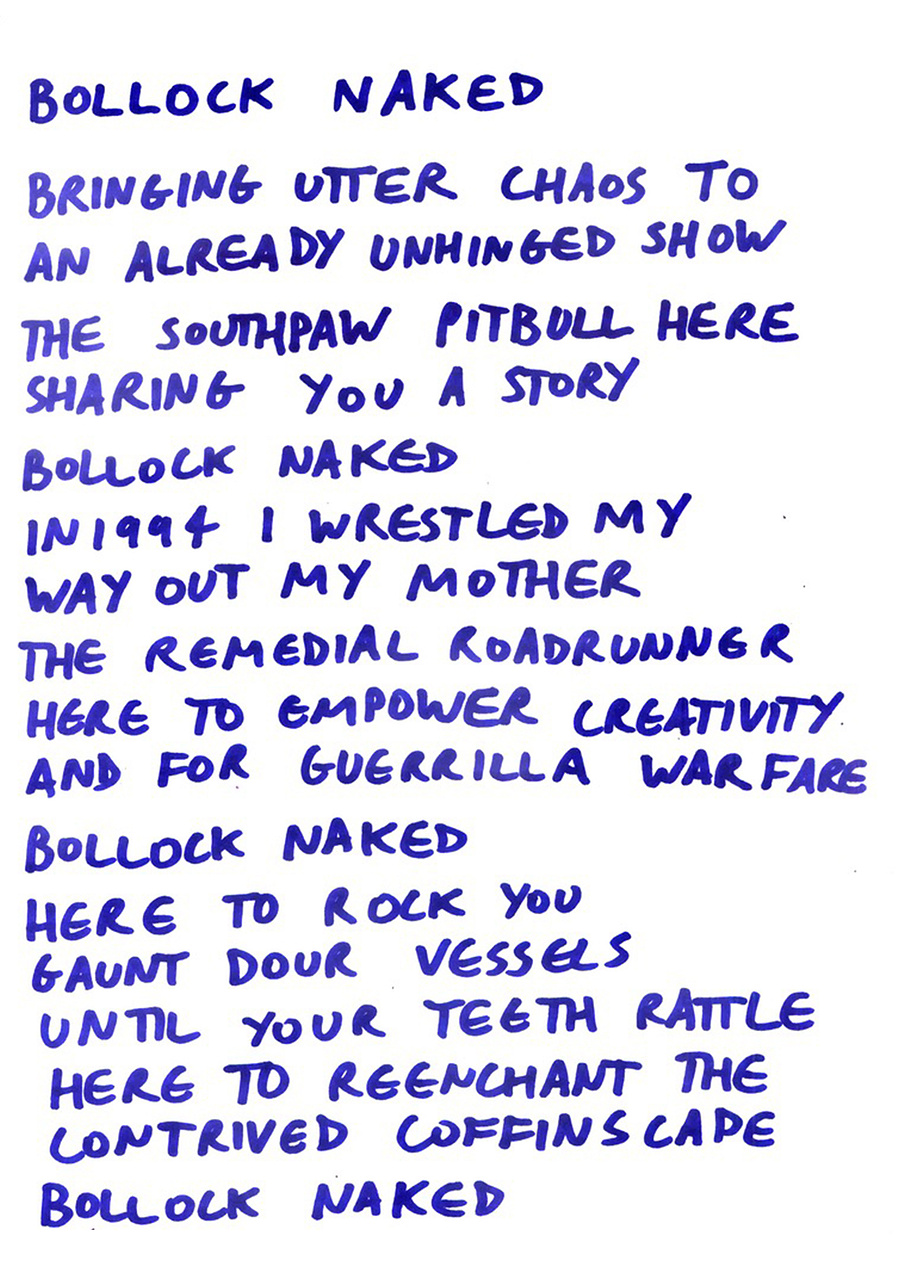 BOLLOCK NAKED
BRINGING UTTER CHAOS TO
AN ALREADY UNHINGED SHOW
THE SOUTHPAW PITBULL HERE
SHARING YOU A STORY
BOLLOCK NAKED
IN 1994 I WRESTLED MY
WAY OUT MY MOTHER
THE REMEDIAL ROADRUNNER
HERE TO EMPOWER CREATIVITY
AND FOR GUERRILLA WARFARE
BOLLOCK NAKED
HERE TO ROCK YOU
GAUNT DOUR VESSELS
UNTIL YOUR TEETH RATTLE
HERE TO REENCHANT THE
CONTRIVED COFFINSCAPE
BOLLOCK NAKED